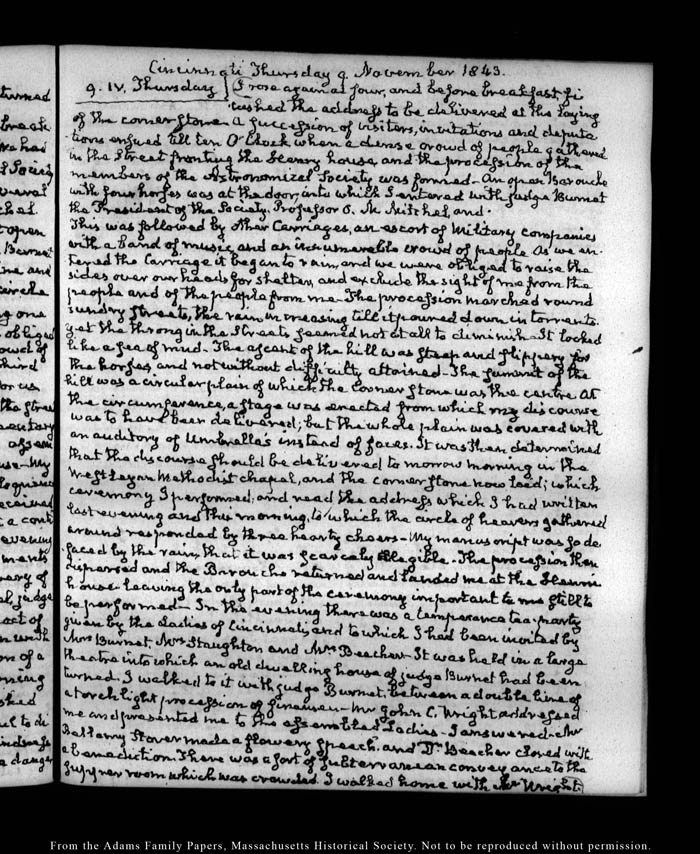 Cincinnati Thursday 9. November 1843.
9. IV. Thursday I rose again at four, and before breakfast fi
nished the address to be delivered at the laying
of the corner stone. A succession of visitors, invitations and deputa
tions ensued till ten O'Clock when a dense crowd of people gathered
in the Street fronting the Henry house, and the procession of the
members of the Astronomical Society was formed. An open Barouche
with four horses was at the door, into which I entered with judge Burnet
the President of the Society, Professor O. M. Mitchel, and .
This was followed by other Carriages, an escort of Military companies
with a band of music, and an innumerable crowd of people. As we en-
tered the Carriage it began to rain, and we were obliged to raise the
sides over our heads for shelter, and exclude the sight of me from the
people and of the people from me. The procession marched round
sundry streets, the rain increasing till it poured down in torrents.
yet the throng in the Streets seemed not at all to diminish. It looked
like a sea of mud. The ascent of the hill was steep and slippery for
the horses, and not without difficulty attained. The summit of the
hill was a circular plain of which the Corner stone was the centre. At
the circumference, a stage was erected from which my discourse
was to have been delivered; but the whole plain was covered with
an auditory of Umbrella's instead of faces. It was then determined
that the discourse should be delivered to morrow morning in the
Wesleyan Methodist chapel, and the corner stone now laid; which
ceremony I performed, and read the address which I had written
last evening and this morning, to which the circle of hearers gathered
around responded by three hearty cheers. My manuscript was so de
faced by the rain, that it was scarcely legible. The procession then
dispersed and the Barouche returned and landed me at the Henrie
house leaving the only part of the ceremony important to me still to
be performed. In the evening there was a temperance tea-party
given by the Ladies of Cincinnati, and to which I had been invited by
Mrs Burnet, Mrs Staughton and Mrs Beecher. It was held in a large
theatre into which an old dwelling house of judge Burnet had been
turned. I walked to it with judge Burnet, between a double line of
a torch light procession of firemen. Mr John C. Wright addressed
me and presented me to the assembled Ladies. I answered. Mr
Bellamy Storer made a flowery speech, and Dr Beecher closed with
a benediction. There was a sort of subterranean conveyance to the
supper room which was crowded. I walked home with Mr Wright.
From the Adams Family Papers, Massachusetts Historical Society. Not to be reproduced without permission.